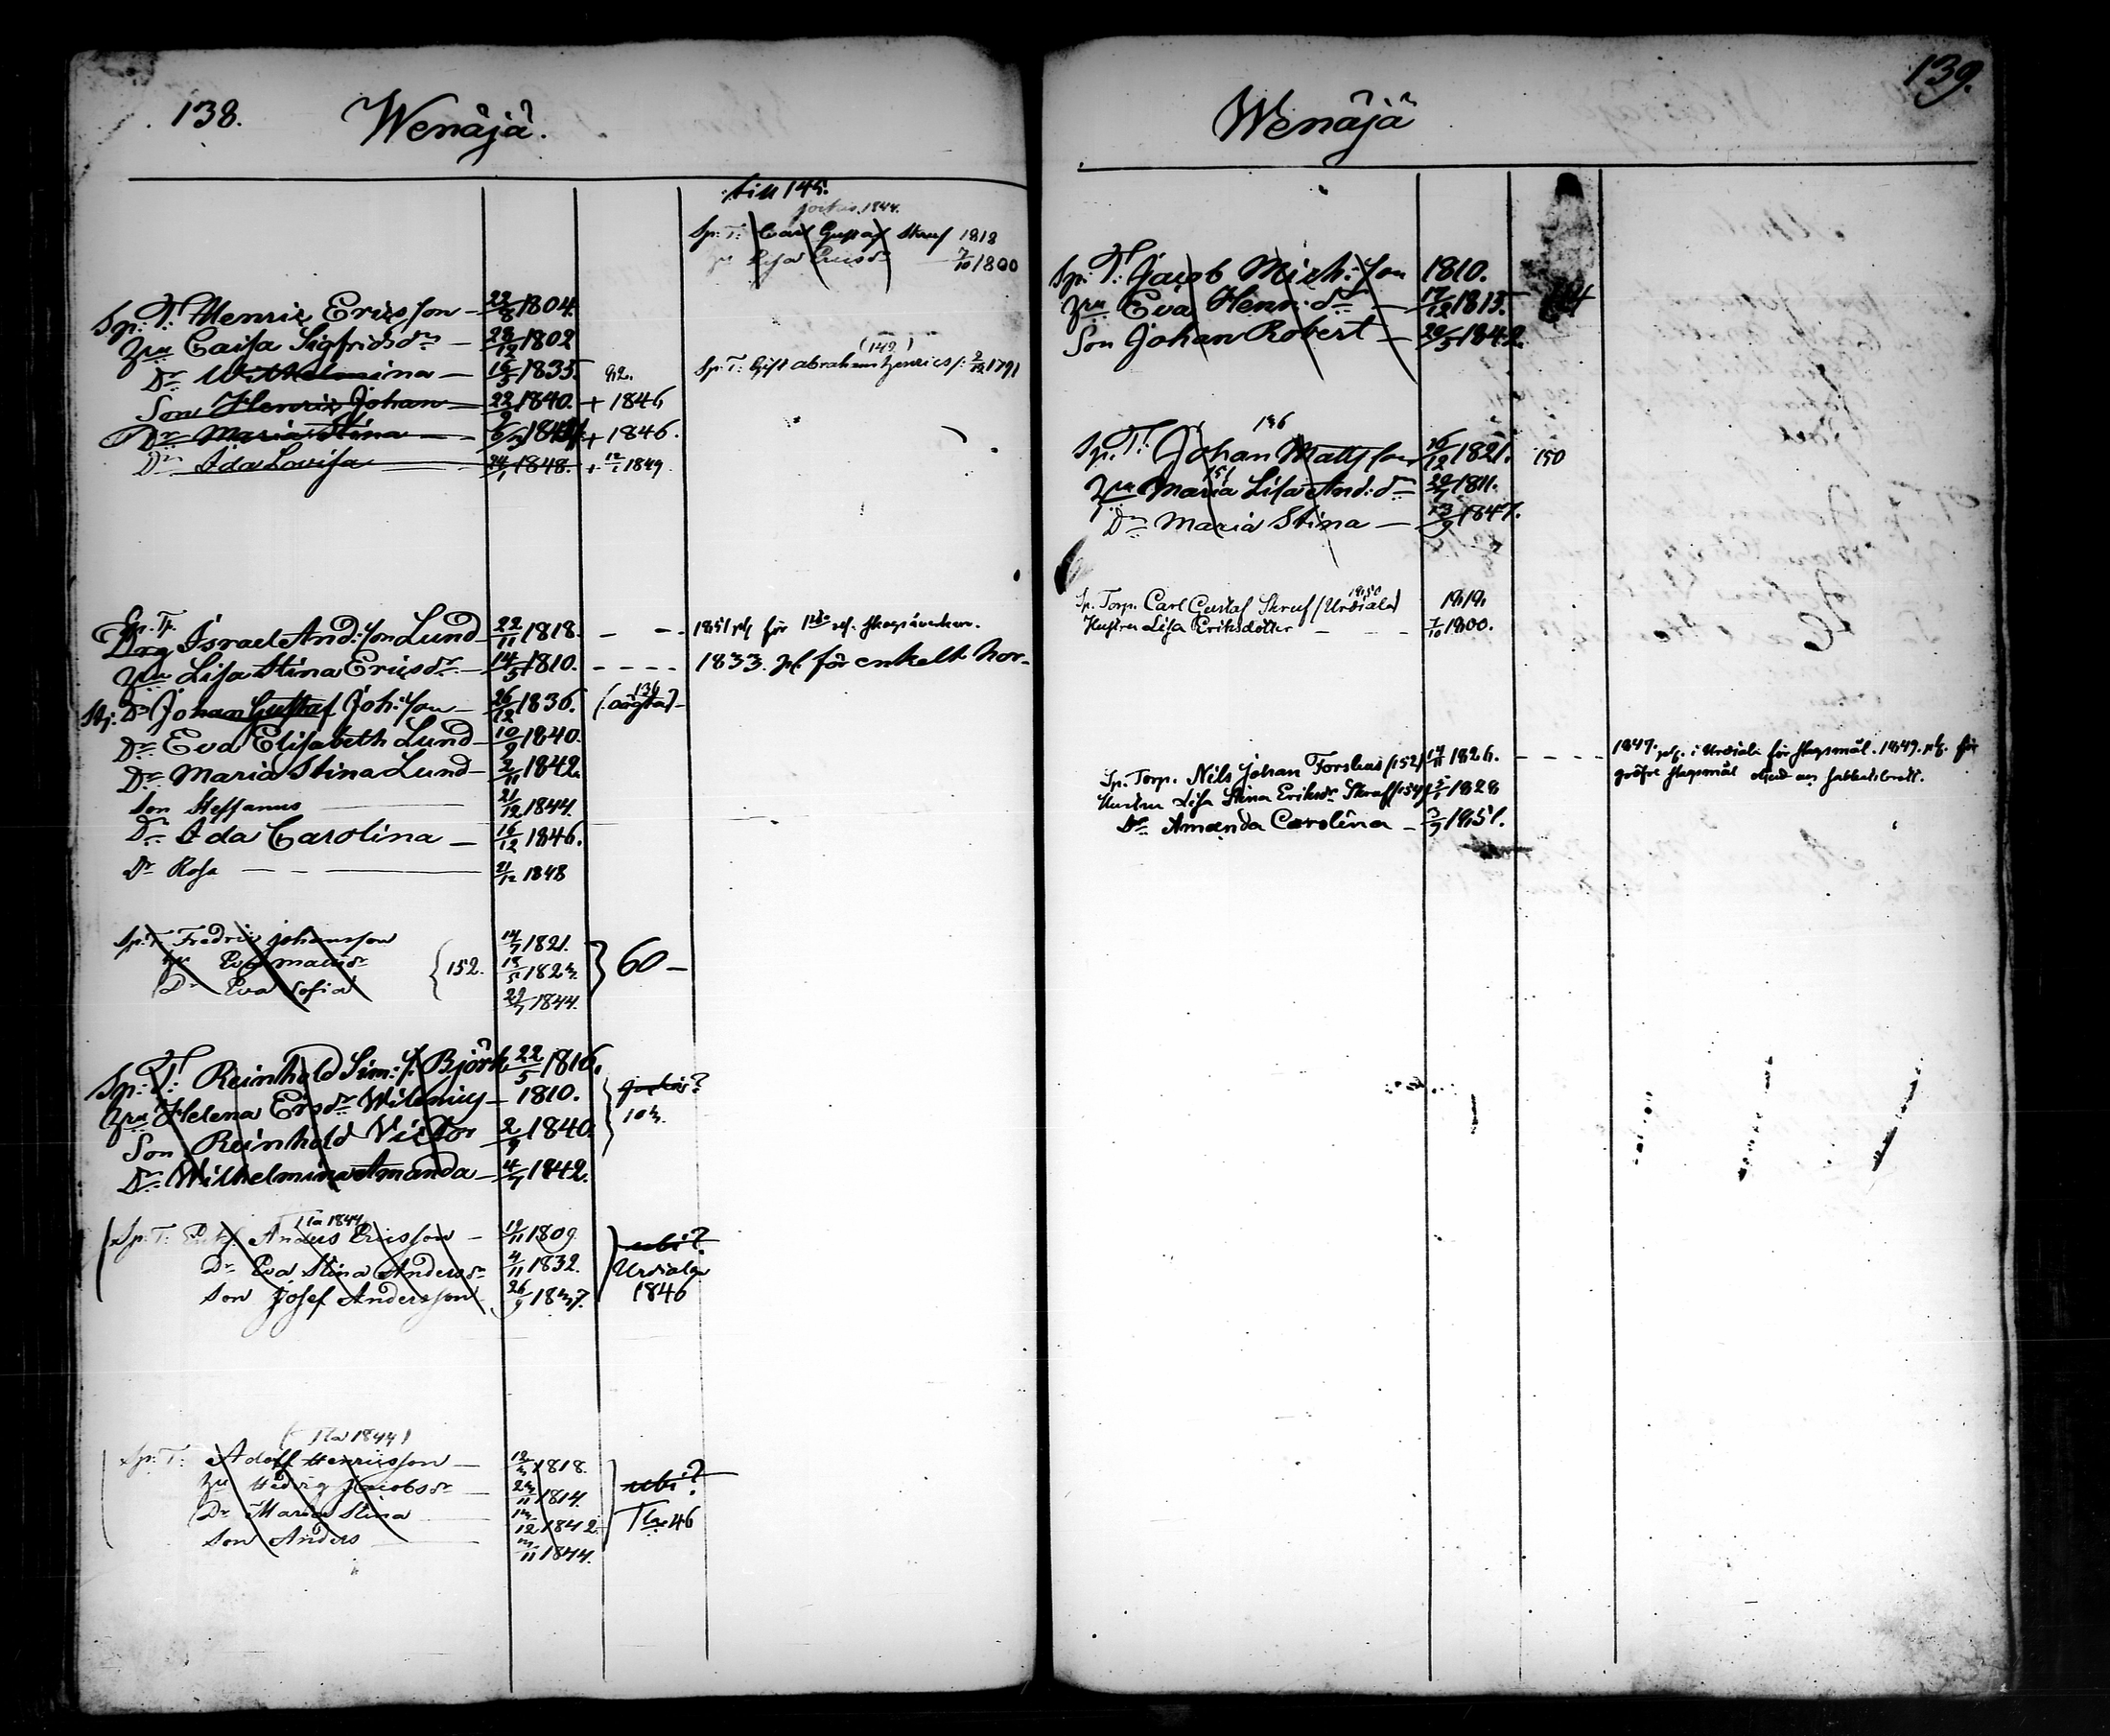 138. Wenäjä.
till 145.
1844.
Sp: T: Carl Gustaf Skruf 1818
Hu Lisa Ericsdr 7/10 1800
Sp: T: Henric Ericsson 22/8 1804.
Hu Caisa Sigfridsdr 28/12 1802
Dr Wilhelmina 16/5 1835. 92.
(142)
Sp: T: Gift Abraham Henrics: 2/12 1791
Son Henric Johan 22/9 1840. + 1846
Dr Maria Stina + 1846.
Dr Ida Lovisa 24/7 1848. + 12/1 1849
Sp. Tp.
Drg Israel And:son Lund 22/11 1818. - - - 1851
Hu Lisa Stina Ericsdr 14/5 1810. - - - - 1833. för enkelt hor-
Johan Gustaf Joh:son 26/12 1836. 136
Dr Eva Elisabeth Lund 10/9 1840.
Dr Maria Stina Lund 2/11 1842.
Son Steffanus 21/12 1844.
Dr Ida Carolina 16/12 1846.
Dr Rosa 21/12 1848
Sp: T. Fredric Johansson 14/7 1821.
Hu Eva Mattsdr {152. } 60 -
Dr Eva Sofia 29/7 1844.
Sp: T: Reinhold Sim: s. Björk 22/5 1816.
Hu Helena Ersdr Wilenius 1810.
Son Reinhold Victor 2/9 1840.
Dr Wilhelmina Amanda 4/7 1842.
Tla 1844
Sp: T: Enkl. Anders Ericsson 19/11 1809 ubi?
Dr Eva Stina Andersdr 4/11 1832. Urdiala
Son Josef Andersson 1846
(Tla 1844)
Sp: T: Adolf Henricsson 1818.
Hu Hedvig Jacobsdr 1814. ubi?
Dr Maria Stina 1842. Tla 46
Son Anders 1844.
139.
Wenäjä
Sp: T: Jacob Mich:son 1810.
Hu Eva Henr:dr 17/12 1813.
Son Johan Robert 20/5 1842.
136
Sp. T: Johan Mattsson 16/12 1821. 150
151
Hu Maria Lisa And:dr 1811.
Dr Maria Stina 13/9 1847.
1850
Sp. Torp. Carl Gustaf Skruf (Urdiala) 1819.
Hustru Lisa Eriksdotter 7/10 1800.
Sp. Torp. Nils Johan Forslius (152) 1826. - - - - 1847. i Urdiala för slagsmål. 1849. för
Hustru Lisa Stina Eriksdr Skruf (154) 1828 gröfre slagsmål
Dr Amanda Carolina 1851.